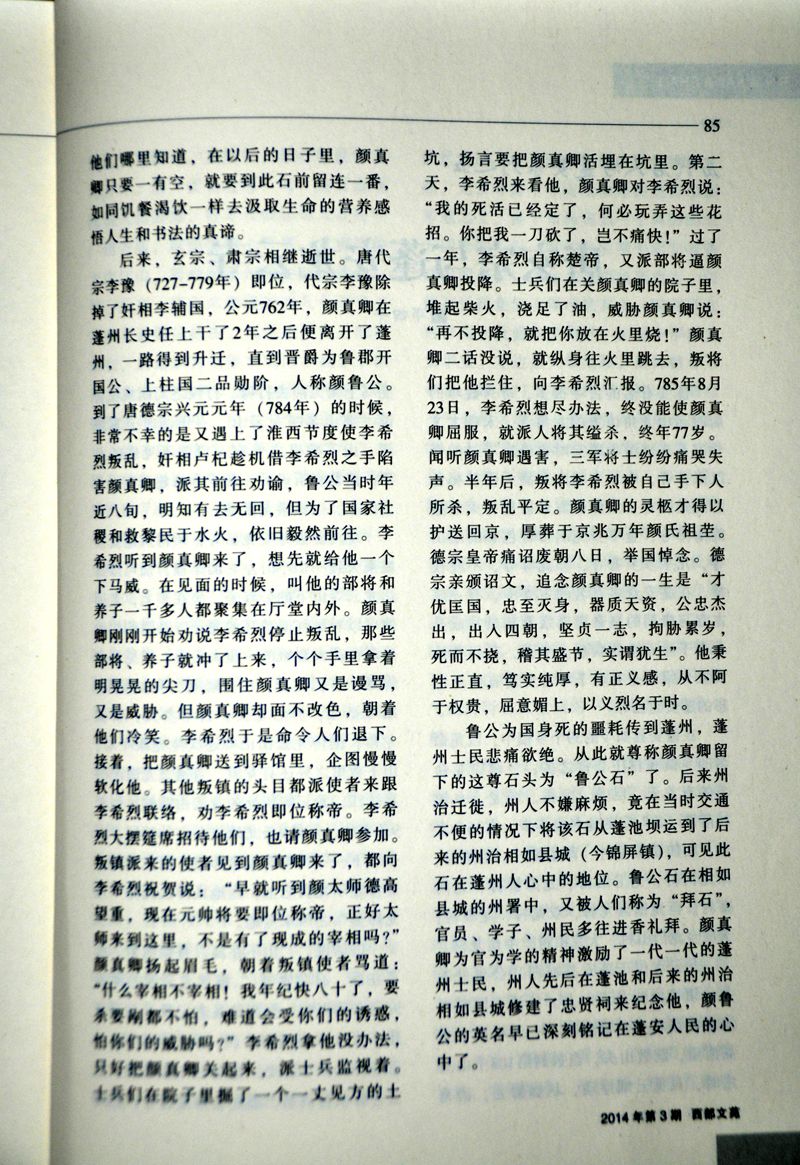 85
他们哪里知道，在以后的日子里，颜真
卿只要一有空，就要到此石前留连一番，
如同饥餐渴饮一样去汲取生命的营养感
悟人生和书法的真谛。
后来，玄宗、肃宗相继逝世。唐代
宗李豫（727-779年）即位，代宗李豫除
掉了奸相李辅国，公元762年，颜真卿在
蓬州长史任上干了2年之后便离开了蓬
州，一路得到升迁，直到晋爵为鲁郡开
国公、上柱国二品勋阶，人称颜鲁公。
到了唐德宗兴元元年（784年）的时候，
非常不幸的是又遇上了淮西节度使李希
烈叛乱，奸相卢杞趁机借李希烈之手陷
害颜真卿，派其前往劝谕，鲁公当时年
近八旬，明知有去无回，但为了国家社
稷和救黎民于水火，依旧毅然前往。李
希烈听到颜真卿来了，想先就给他一个
下马威。在见面的时候，叫他的部将和
养子一千多人都聚集在厅堂内外。颜真
卿刚刚开始劝说李希烈停止叛乱，那些
部将、养子就冲了上来，个个手里拿着
明晃晃的尖刀，围住颜真卿又是谩骂，
又是威胁。但颜真卿却面不改色，朝着
他们冷笑。李希烈于是命令人们退下。
接着，把颜真卿送到驿馆里，企图慢慢
软化他。其他叛镇的头目都派使者来跟
李希烈联络，劝李希烈即位称帝。李希
烈大摆筵席招待他们，也请颜真卿参加。
叛镇派来的使者见到颜真卿来了，都向
李希烈祝贺说：“早就听到颜太师德高
望重，现在元帅将要即位称帝，正好太
师来到这里，不是有了现成的宰相吗？”
颜真卿扬起眉毛，朝着叛镇使者骂道：
“什么宰相不宰相！我年纪快八十了，要
杀要剐都不怕，难道会受你们的诱惑，
怕你们的威胁吗？”李希烈拿他没办法，
只好把颜真卿关起来，派士兵监视着。
士兵们在院子里掘了一个一丈见方的土
坑，扬言要把颜真卿活埋在坑里。第二
天，李希烈来看他，颜真卿对李希烈说：
“我的死活已经定了，何必玩弄这些花
招。你把我一刀砍了，岂不痛快！”过了
一年，李希烈自称楚帝，又派部将逼颜
真卿投降。士兵们在关颜真卿的院子里，
堆起柴火，浇足了油，威胁颜真卿说：
“再不投降，就把你放在火里烧！”颜真
卿二话没说，就纵身往火里跳去，叛将
们把他拦住，向李希烈汇报。785年8月
23日，李希烈想尽办法，终没能使颜真
卿屈服，就派人将其缢杀，终年77岁。
闻听颜真卿遇害，三军将士纷纷痛哭失
声。半年后，叛将李希烈被自己手下人
所杀，叛乱平定。颜真卿的灵柩才得以
护送回京，厚葬于京兆万年颜氏祖茔。
德宗皇帝痛诏废朝八日，举国悼念。德
宗亲颁诏文，追念颜真卿的一生是“才
优匡国，忠至灭身，器质天资，公忠杰
出，出人四朝，坚贞一志，拘胁累岁，
死而不挠，稽其盛节，实谓犹生”。他秉
性正直，笃实纯厚，有正义感，从不阿
于权贵，屈意媚上，以义烈名于时。
鲁公为国身死的噩耗传到蓬州，蓬
州士民悲痛欲绝。从此就尊称颜真卿留
下的这尊石头为“鲁公石”了。后来州
治迁徙，州人不嫌麻烦，竟在当时交通
不便的情况下将该石从蓬池坝运到了后
来的州治相如县城（今锦屏镇），可见此
石在蓬州人心中的地位。鲁公石在相如
县城的州署中，又被人们称为“拜石”，
官员、学子、州民多往进香礼拜。颜真
卿为官为学的精神激励了一代一代的蓬
州士民，州人先后在蓬池和后来的州治
相如县城修建了忠贤祠来纪念他，颜鲁
公的英名早已深刻铭记在蓬安人民的心
中了。
2014年第3期 西部文苑